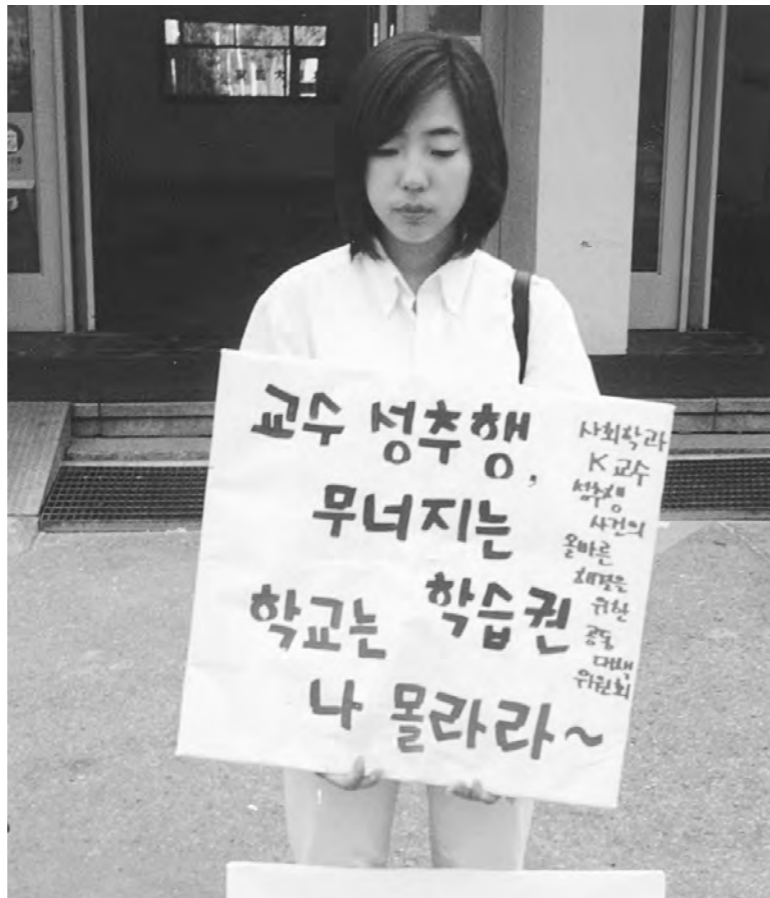 교수 성추행,
무너지는
학습권
학교는
나 몰라라~
사회학과
K 교수
성추행
사건의
올바른
해결을
위한
공동
대책
위원회